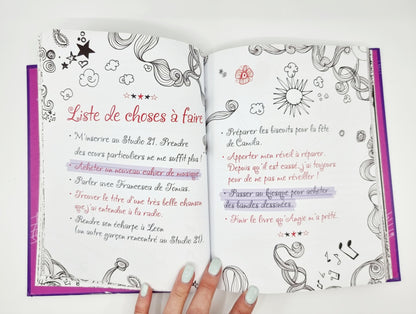 Liste de choses à faire
• M'inscrire au Studio 21. Prendre
des cours particuliers ne me suffit plus !
• Acheter un nouveau cahier de musique.
• Parler avec Francesca de Tomas.
• Trouver le titre d'une très belle chanson
que j'ai entendue à la radio.
• Rendre son écharpe à Leon
(un autre garçon rencontré au Studio 21).
• Préparer les biscuits pour la fête
de Camila.
• Apporter mon réveil à réparer.
Depuis qu'il est cassé, j'ai toujours
peur de ne pas me réveiller !
• Passer au kiosque pour acheter
des bandes dessinées.
• Finir le livre qu'Angie m'a prêté.